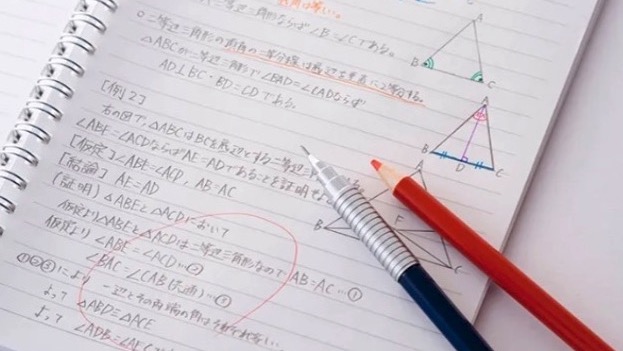 二等辺三角形ならば∠B=∠Cである。
○二等辺三角形の頂角の二等分線は底辺を垂直に2等分する。
△ABCが二等辺三角形で∠BAD=∠CADならば
AD⊥BC・BD=CDである。
[例2]
右の図で、△ABCはBCを底辺とする二等辺三
∠ABE=∠ACDならばAE=ADであることを証明
[仮定]∠ABE=∠ACD, AB=AC
[結論] AE=AD
(証明) △ABEと△ACDにおいて
仮定より △ABEと△ACDは二等辺三角形なので AB=AC…①
仮定より ∠ABE=∠ACD…②
∠BAC=∠CAB(共通)…③
①②③により 一辺とその両端の角はそれぞれ等しい
よって △ABD≡△ACE
よって ∠ADB=∠AEC
A
B
C
A
B
D
C
A
B
F
C